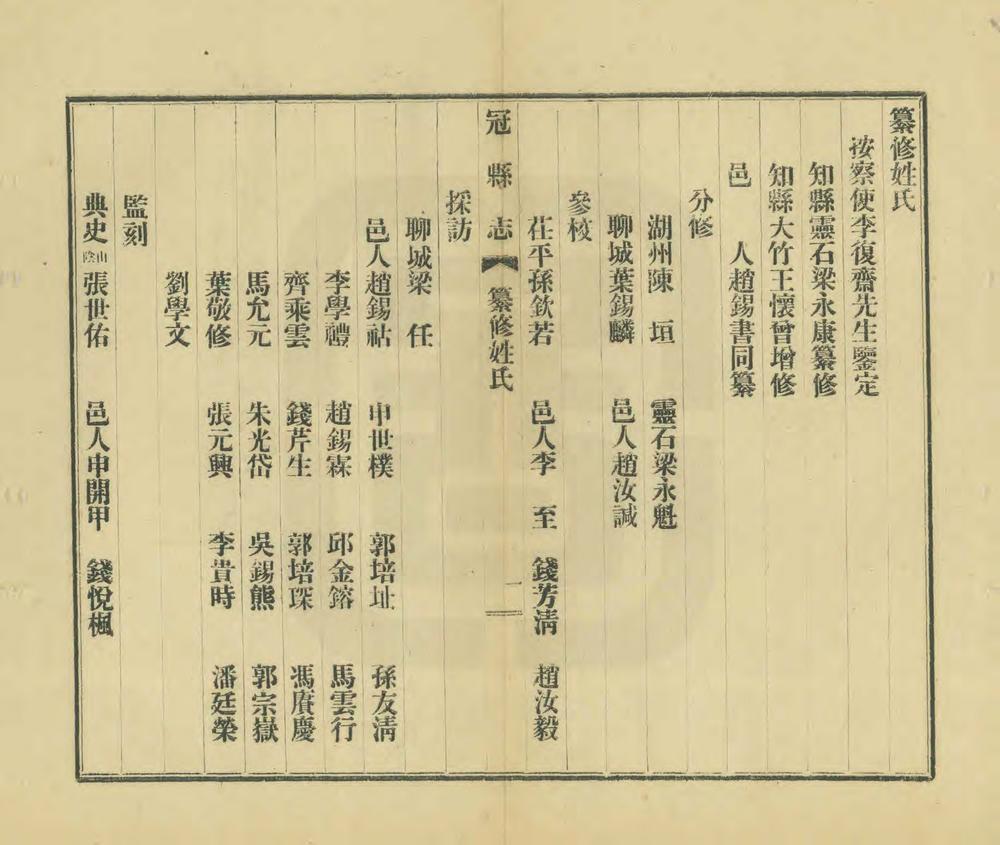 纂修姓氏
按察使李復齋先生鑒定
知縣靈石梁永康纂修
知縣大竹王懷曾增修
邑　人趙錫書同纂
分修
湖州陳　垣　靈石梁永魁
聊城葉錫麟　邑人趙汝諴
參校
茌平孫欽若　邑人李　至　錢芳淸　趙汝毅
冠縣志　纂修姓氏　一
採訪
聊城梁　任
邑人趙錫祜　申世樸　郭培址　孫友淸
李學禮　趙錫霖　邱金鎔　馬雲行
齊乘雲　錢芹生　郭培琛　馮賡慶
馬允元　朱光岱　吳錫熊　郭宗嶽
葉敬修　張元興　李貴時　潘廷榮
劉學文
監刻
典史山陰張世佑　邑人申開甲　錢悅楓